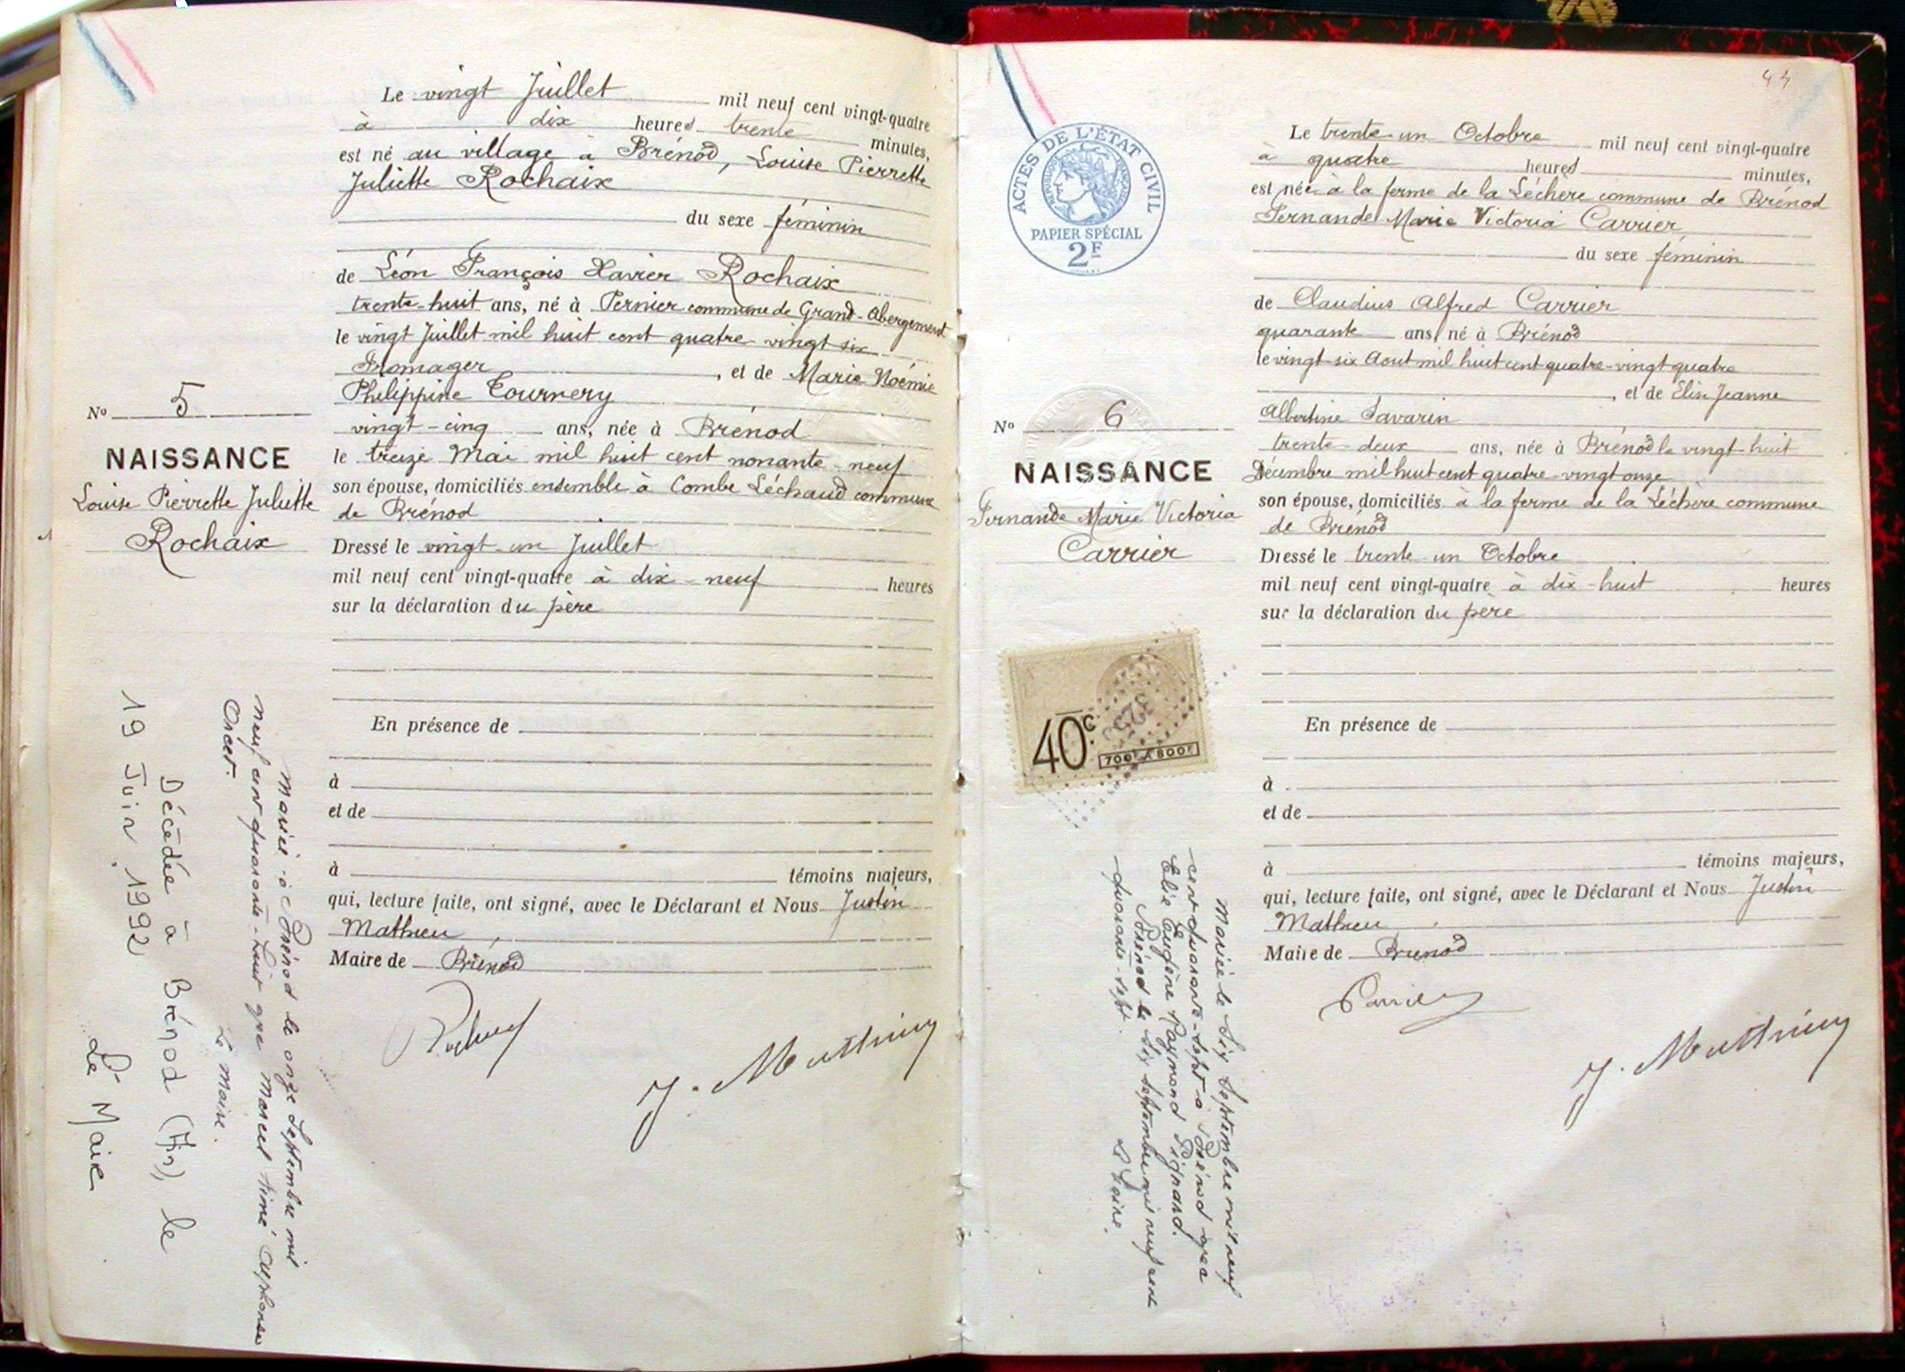 Le vingt Juillet mil neuf cent vingt-quatre
à dix heures trente minutes,
est né au village à Brénod, Louise Pierrette
Juliette Rochaix
du sexe féminin
de Léon François Xavier Rochaix
trente-huit ans, né à commune de Grand-Abergement
le vingt Juillet mil huit cent quatre vingt six
Fromager, et de Marie Noémie
Philippine Tournery
vingt-cinq ans, née à Brénod
le treize Mai mil huit cent nonante-neuf
son épouse, domiciliés ensemble à Combe Léchaud commune
de Brénod
Dressé le vingt-un Juillet
mil neuf cent vingt-quatre à dix-neuf heures
sur la déclaration du père
En présence de
à
et de
à témoins majeurs,
qui, lecture faite, ont signé, avec le Déclarant et Nous Justin
Mathieu
Maire de Brénod
No 5
NAISSANCE
Louise Pierrette Juliette
Rochaix
Mariée à Brénod le onze Septembre mil
neuf cent quarante-huit avec Marcel Aimé Alphonse
Le Maire.
Décédée à Brénod (Ain), le
19 Juin 1992
Le Maire
44
ACTES DE L'ÉTAT CIVIL
PAPIER SPÉCIAL
2F
Le trente-un Octobre mil neuf cent vingt-quatre
à quatre heures minutes,
est née à la ferme de la Léchère commune de Brénod
Fernande Marie Victoria Carrier
du sexe féminin
de Claudius Alfred Carrier
quarante ans, né à Brénod
le vingt-six Aout mil huit cent quatre-vingt-quatre
, et de Elisa Jeanne
Albertine Savarin
trente-deux ans, née à Brénod le vingt-huit
Décembre mil huit cent quatre-vingt onze
son épouse, domiciliés à la ferme de la Léchère commune
de Brénod
Dressé le trente-un Octobre
mil neuf cent vingt-quatre à dix-huit heures
sur la déclaration du père
En présence de
à
et de
à témoins majeurs,
qui, lecture faite, ont signé, avec le Déclarant et Nous Justin
Mathieu
Maire de Brénod
J. Mathieu
J. Mathieu
No 6
NAISSANCE
Fernande Marie Victoria
Carrier
40c
700F À 800F
Mariée le six Septembre mil neuf
cent quarante-sept à Brénod avec
Elie Eugène Raymond Pignard.
Brénod le six Septembre mil neuf cent
quarante-sept.
Le Maire.